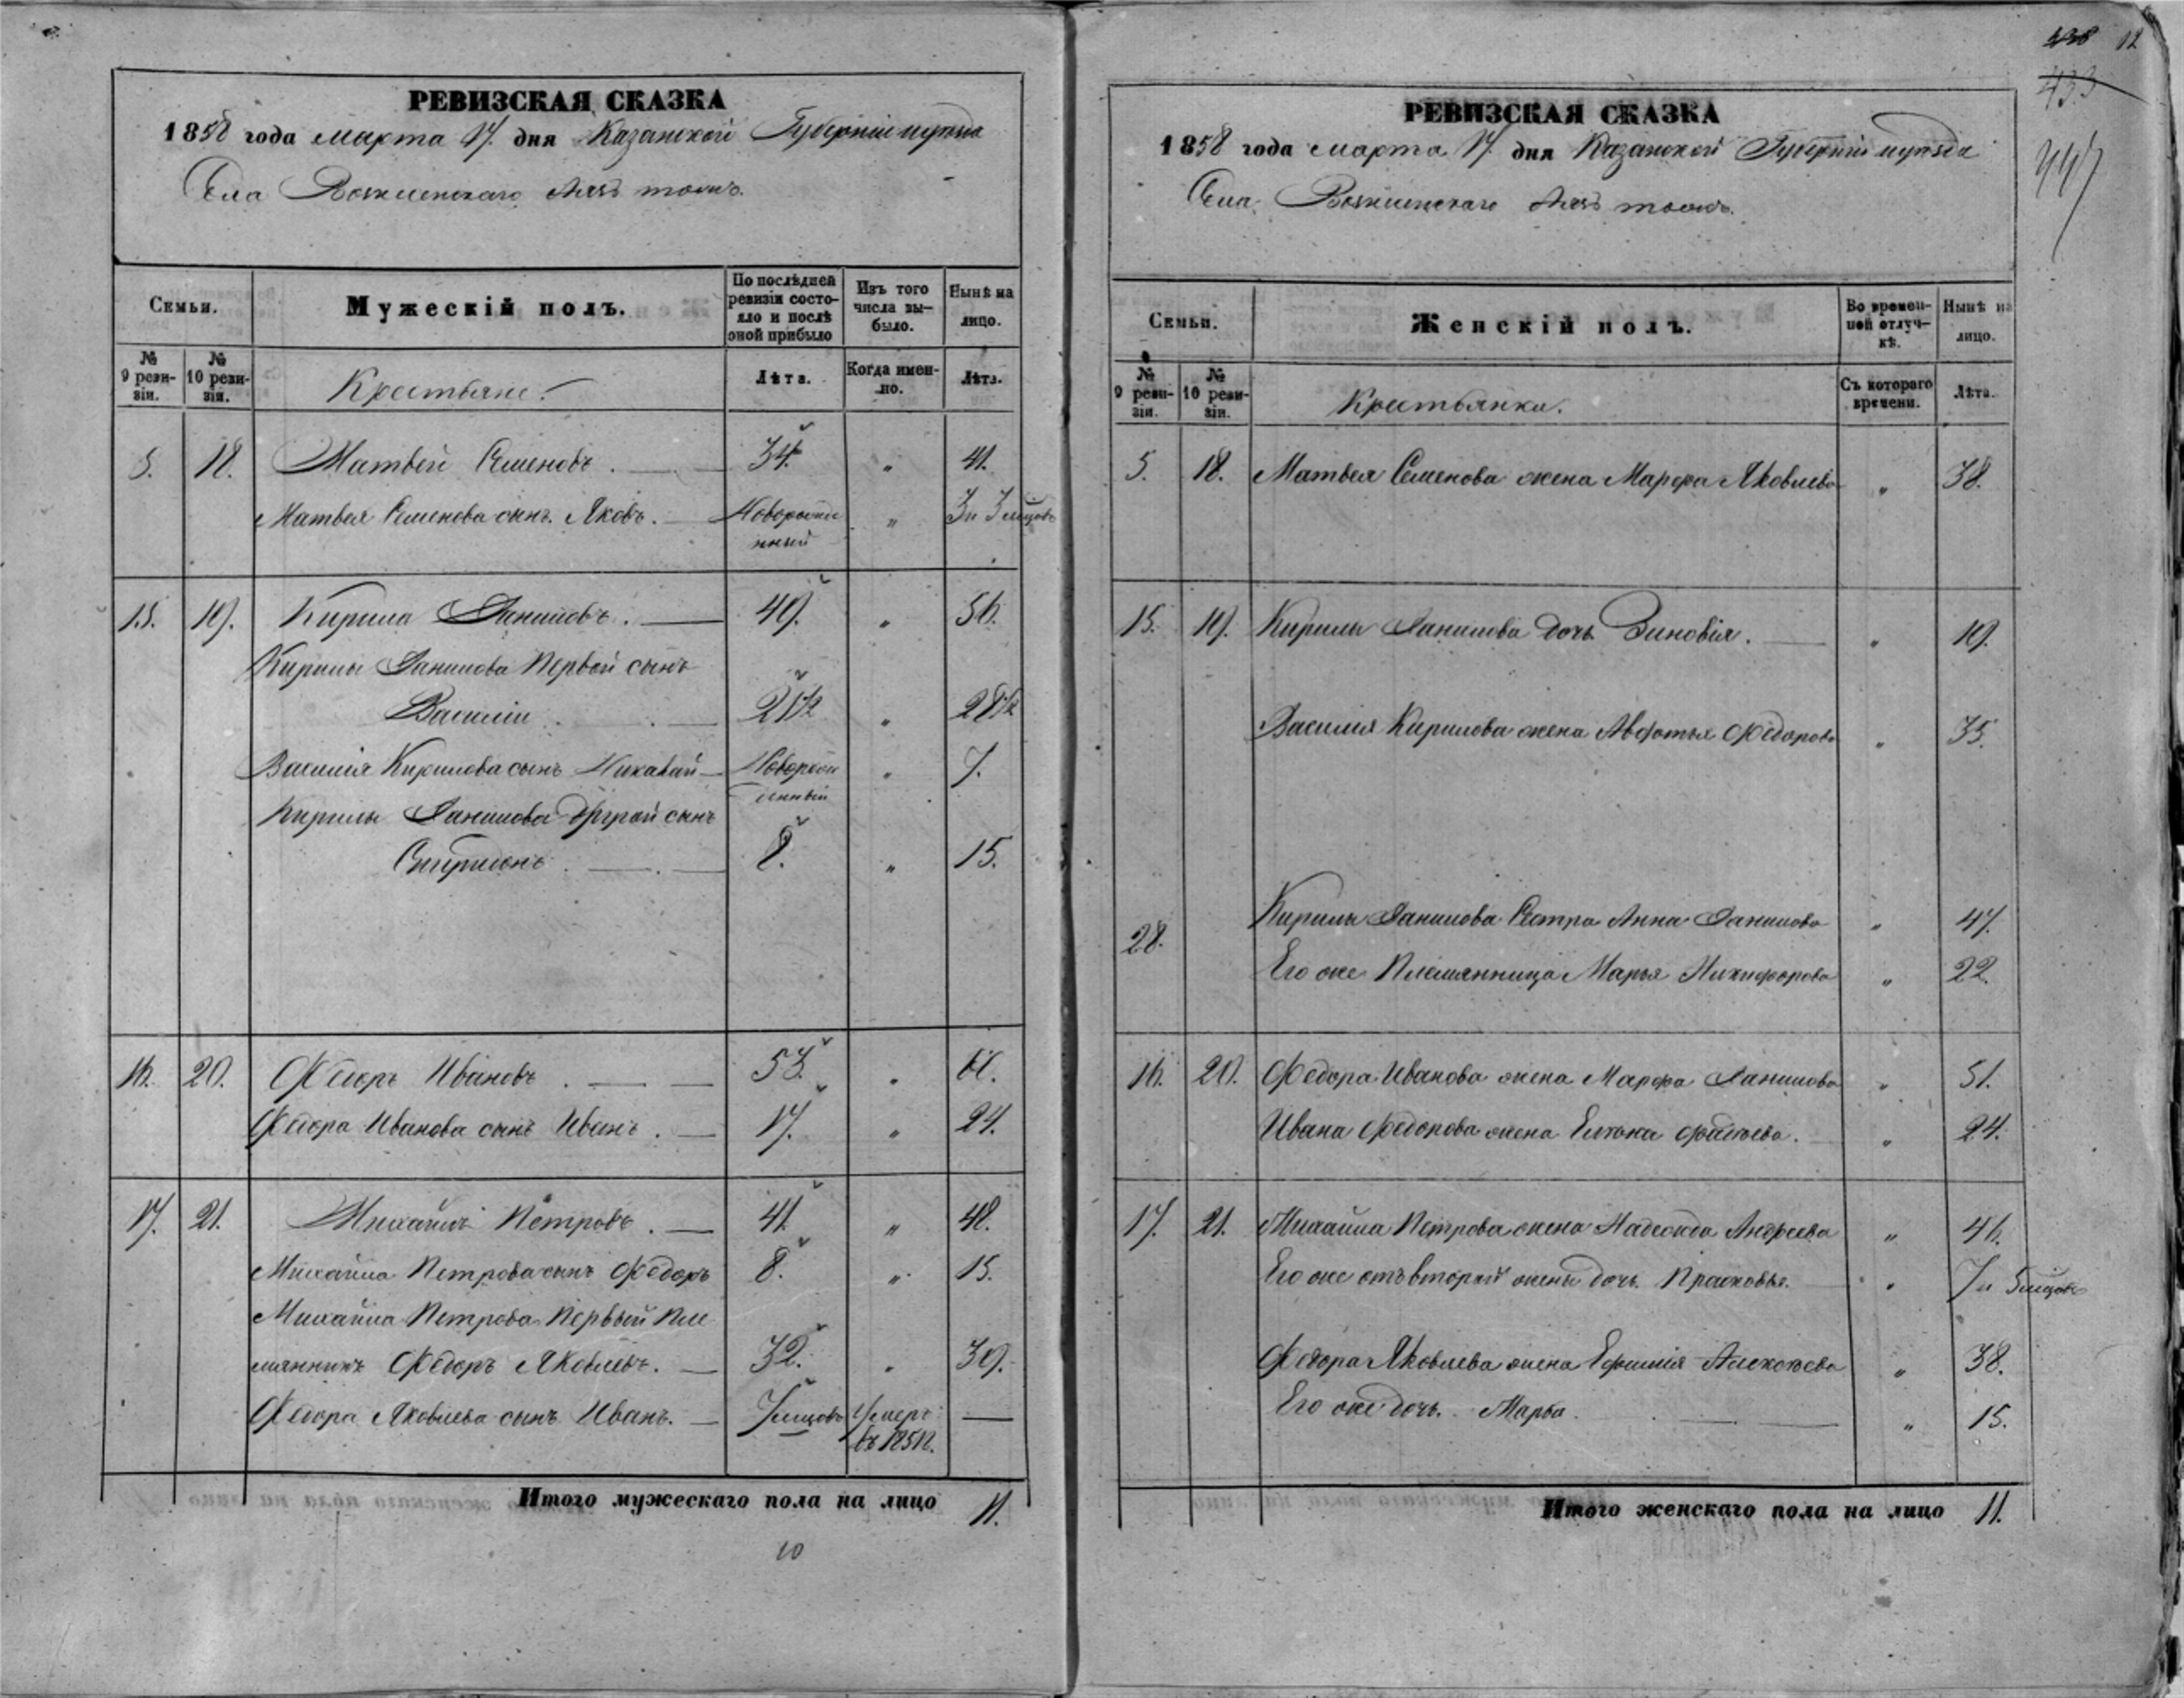 РЕВИЗСКАЯ СКАЗКА
1858 года марта 17. дня Казанской Губернии и уезда
Села Воскресенскаго тожъ.
Семьи.
Мужескій полъ.
По послѣдней ревизіи состояло и послѣ оной прибыло
Изъ того числа выбыло.
Нынѣ на лицо.
№ 9 ревизіи.
№ 10 ревизіи.
Крестьяне.
Лѣта.
Когда именно.
Лѣта.
5. 18. Матвей Семеновъ. 34. " 41.
Матвея Семенова сынъ Яковъ. Новорожденный " 3 и 3 мѣцовъ
15. 19. Кирила Даниловъ. 49. " 56.
Кирилы Данилова Первой сынъ
Василіи 21½ " 28½
Василія Кирилова сынъ Николай Новорожденный " 7.
Кирилы Данилова другой сынъ
Спиридонъ 8. " 15.
16. 20. Федоръ Ивановъ 53. " 60.
Федора Иванова сынъ Иванъ. 17. " 24.
17. 21. Михайла Петровъ. 41. " 48.
Михайла Петрова сынъ Федоръ 8. " 15.
Михайла Петрова Первый Пле
мянникъ Федоръ Яковлевъ. 32. " 39.
Федора Яковлева сынъ Иванъ. 7 мѣцовъ Умеръ въ 1851г. —
Итого мужескаго пола на лицо 11.
10
12
433
447
РЕВИЗСКАЯ СКАЗКА
1858 года марта 17. дня Казанской Губерніи и уезда
Села Воскресенскаго тожъ.
Семьи.
Женскій полъ.
Во временной отлучкѣ.
Нынѣ на лицо.
№ 9 ревизіи.
№ 10 ревизіи.
Крестьянки.
Съ котораго времени.
Лѣта.
5. 18. Матвея Семенова жена Марфа Яковлева " 38.
15. 19. Кирилы Данилова дочь Зиновія. " 19.
Василія Кирилова жена Авдотья Федорова " 35.
28. Кирилы Данилова Сестра Анна Данилова " 47.
Его же Племянница Марья Никифорова " 22.
16. 20. Федора Иванова жена Марфа Данилова " 51.
Ивана Федорова жена Елена Фадеева. " 24.
17. 21. Михайла Петрова жена Надежда Андреева " 46.
Его же отъ второй жены дочь Прасковья. " 7 и 5 мѣцовъ
Федора Яковлева жена Ефимія Алексеева " 38.
Его же дочь Марва " 15.
Итого женскаго пола на лицо 11.